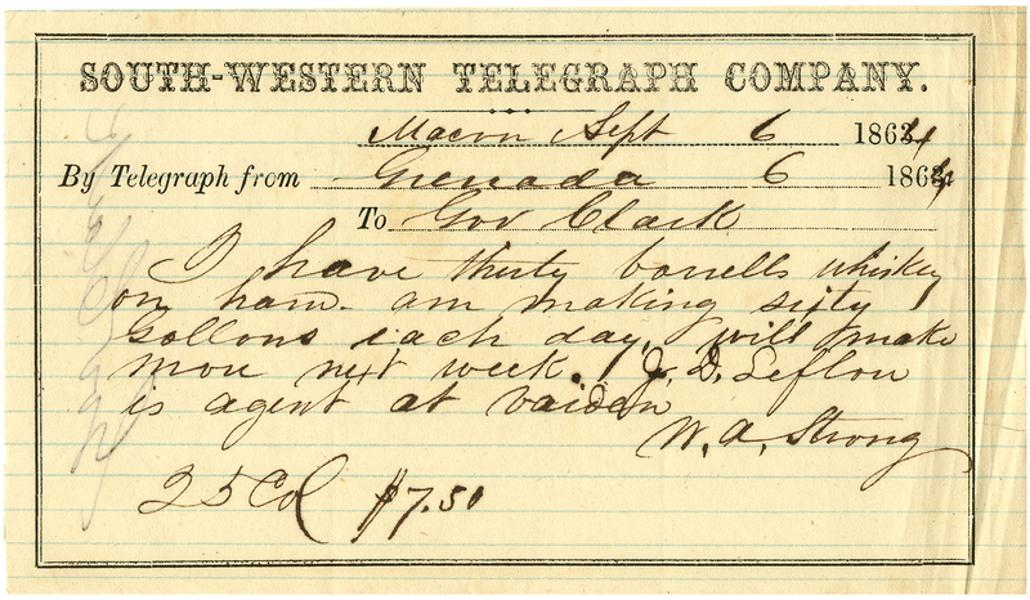 SOUTH-WESTERN TELEGRAPH COMPANY.
Macon Sept 6 1864
By Telegraph from Grenada 6 1864
To Gov Clark
I have thirty barrells whiskey
on hand - am making sixty
Gallons each day, will make
more next week. J. D. Leflore
is agent at Vaiden
W. A. Strong
25 Col $7.50